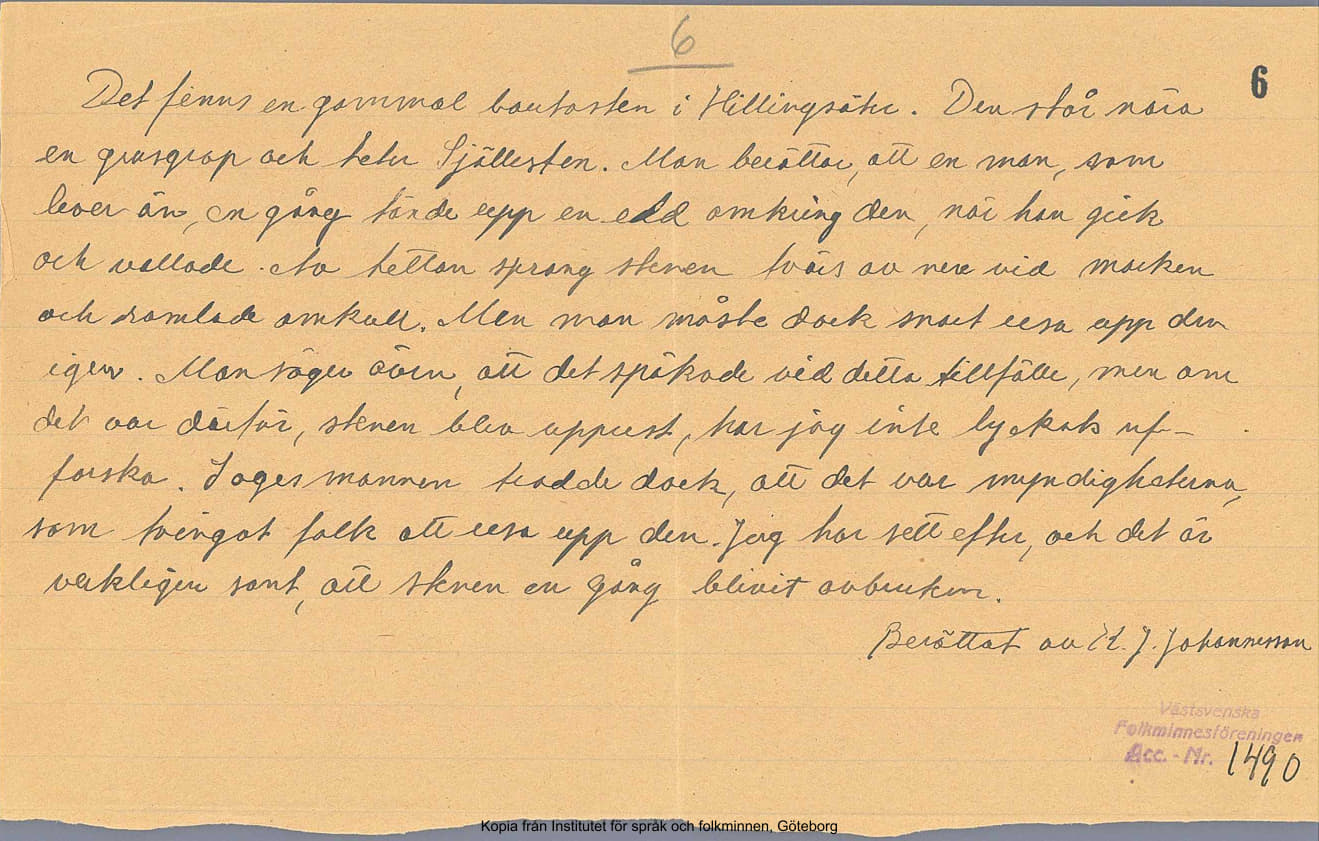 6
6
Det finns en gammal bautasten i Hillingsäter. Den står nära
en grusgrop och heter Själlesten. Man berättar, att en man, som
lever än, en gång tände upp en eld omkring den, när han gick
och vallade. Av hettan sprang stenen tvärs av nere vid marken
och ramlade omkull. Men man måste dock snart resa upp den
igen. Man säger även, att det spökade vid detta tillfälle, men om
det var därför, stenen blev upprest, har jag inte lyckats ut-
forska. Sagesmannen trodde dock, att det var myndigheterna,
som tvingat folk att resa upp den. Jag har sett efter, och det är
verkligen sant, att stenen en gång blivit avbruten.
Berättat av K. J. Johannesson
Västsvenska
Folkminnesföreningen
Acc. - Nr. 1490
Kopia från Institutet för språk och folkminnen, Göteborg